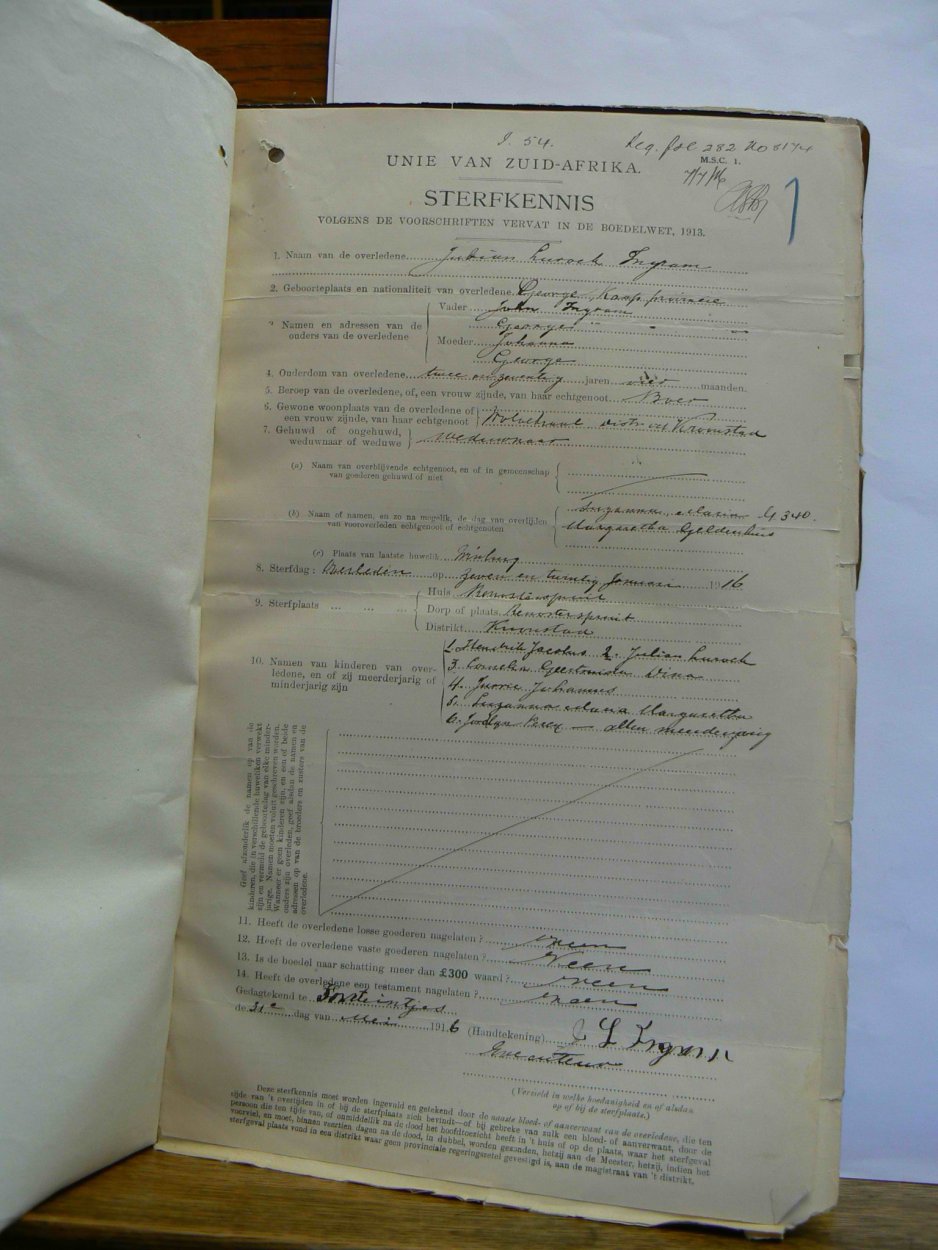 I. 54. Reg. fol 282 No 8174
UNIE VAN ZUID-AFRIKA. M.S.C. 1.
7/7/16
STERFKENNIS
1
VOLGENS DE VOORSCHRIFTEN VERVAT IN DE BOEDELWET, 1913.
1. Naam van de overledene Julian Luroch Ingram
2. Geboorteplaats en nationaliteit van overledene George, Kaap provincie
3. Namen en adressen van de ouders van de overledene
Vader John Ingram
George
Moeder Johanna
George
4. Ouderdom van overledene twee en zeventig jaren vier maanden.
5. Beroep van de overledene, of, een vrouw zijnde, van haar echtgenoot Boer
6. Gewone woonplaats van de overledene of
een vrouw zijnde, van haar echtgenoot distrikt Kroonstad
7. Gehuwd of ongehuwd,
weduwnaar of weduwe weduwnaar
(a) Naam van overblijvende echtgenoot, en of in gemeenschap
van goederen gehuwd of niet
(b) Naam of namen, en zo na mogelik, de dag van overlijden
van vooroverleden echtgenoot of echtgenoten
Suzanna Maria 4340.
Margaretha Geldenhuis
(c) Plaats van laatste huwelik Winburg
8. Sterfdag: Overleden op zeven en twintig Januari 1916
9. Sterfplaats
Huis Renosterspruit
Dorp of plaats Renosterspruit
Distrikt Kroonstad
10. Namen van kinderen van over-
ledene, en of zij meerderjarig of
minderjarig zijn
1. Hendrik Jacobus 2. Julian Luroch
3. Cornelia Geertruida Dina
4. Jurrie Johannes
5. Suzanna Maria Margaretha
6. Joclyn Percy — allen meerderjarig
Geef afzonderlik de namen op van de
kinderen, die in verschillende huweliken verwekt
zijn en vermeld de geboortedag van elke minder-
jarige. Namen moeten voluit geschreven worden.
Wanneer er geen kinderen zijn, en een of beide
ouders zijn overleden, geef alsdan de namen en
adressen op van de broeders en zusters van de
overledene.
11. Heeft de overledene losse goederen nagelaten? Neen
12. Heeft de overledene vaste goederen nagelaten? Neen
13. Is de boedel naar schatting meer dan £300 waard? Neen
14. Heeft de overledene een testament nagelaten? Neen
Gedagtekend te
de 31e dag van Mei 1916 (Handtekening) J L Ingram
Executeur
(Vermeld in welke hoedanigheid en of alsdan
op of bij de sterfplaats.)
Deze sterfkennis moet worden ingevuld en getekend door de naaste bloed- of aanverwant van de overledene, die ten
tijde van 't overlijden in of bij de sterfplaats zich bevindt—of bij gebreke van zulk een bloed- of aanverwant, door de
persoon die ten tijde van, of onmiddellik na de dood het hoofdtoezicht heeft in 't huis of op de plaats, waar het sterfgeval
voorviel, en moet, binnen veertien dagen na de dood, in dubbel, worden gezonden, hetzij aan de Meester, hetzij, indien het
sterfgeval plaats vond in een distrikt waar geen provinciale regeringszetel gevestigd is, aan de magistraat van 't distrikt.